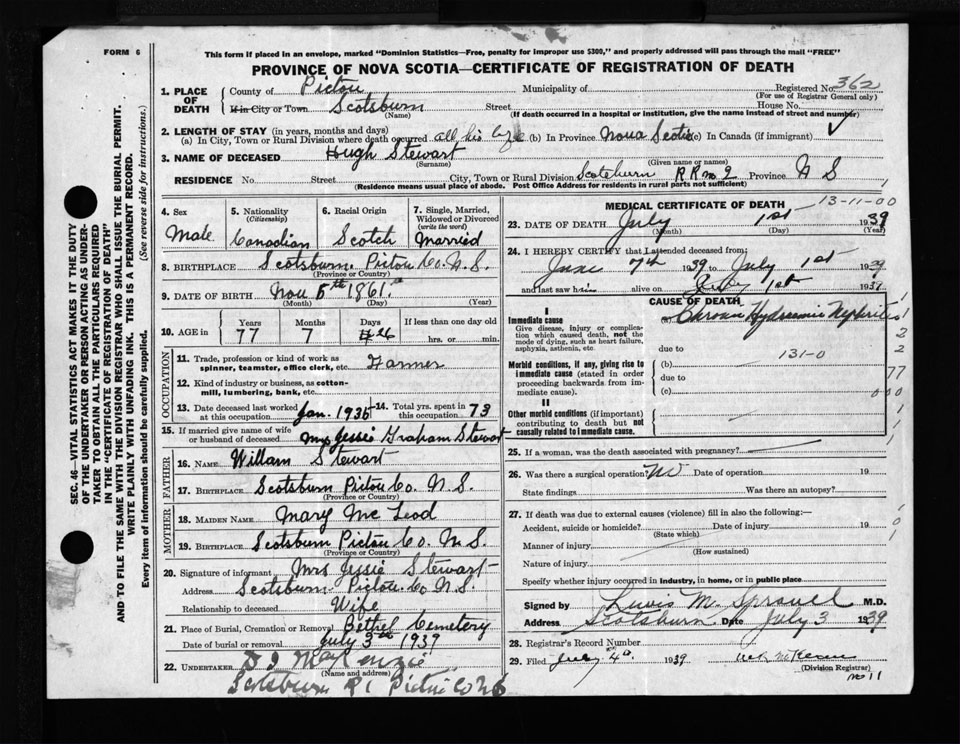 FORM 6
This form if placed in an envelope, marked "Dominion Statistics—Free, penalty for improper use $300," and properly addressed will pass through the mail "FREE"
PROVINCE OF NOVA SCOTIA—CERTIFICATE OF REGISTRATION OF DEATH
SEC. 46—VITAL STATISTICS ACT MAKES IT THE DUTY
OF THE UNDERTAKER OR PERSON ACTING AS UNDER-
TAKER TO OBTAIN ALL THE PARTICULARS REQUIRED
IN THE "CERTIFICATE OF REGISTRATION OF DEATH"
AND TO FILE THE SAME WITH THE DIVISION REGISTRAR WHO SHALL ISSUE THE BURIAL PERMIT.
WRITE PLAINLY WITH UNFADING INK. THIS IS A PERMANENT RECORD.
Every item of information should be carefully supplied. (See reverse side for instructions.)
1. PLACE OF DEATH County of Pictou Municipality of Registered No. 362
(For use of Registrar General only)
If in City or Town Scotsburn Street House No.
(Name) (If death occurred in a hospital or institution, give the name instead of street and number)
2. LENGTH OF STAY (in years, months and days)
(a) In City, Town or Rural Division where death occurred all his life (b) In Province Nova Scotia (c) In Canada (if immigrant)
3. NAME OF DECEASED Hugh Stewart
(Surname) (Given name or names)
RESIDENCE No. Street City, Town or Rural Division Scotsburn RR no 2 Province N S
(Residence means usual place of abode. Post Office Address for residents in rural parts not sufficient)
4. Sex Male
5. Nationality (Citizenship) Canadian
6. Racial Origin Scotch
7. Single, Married, Widowed or Divorced (write the word) Married
8. BIRTHPLACE Scotsburn Pictou Co. N.S.
(Province or Country)
9. DATE OF BIRTH Nov 5th 1861
(Month) (Day) (Year)
10. AGE in Years 77 Months 7 Days 26 If less than one day old hrs. or min.
OCCUPATION
11. Trade, profession or kind of work as spinner, teamster, office clerk, etc. Farmer
12. Kind of industry or business, as cotton-mill, lumbering, bank, etc.
13. Date deceased last worked at this occupation Jan. 1936 14. Total yrs. spent in this occupation 73
15. If married give name of wife or husband of deceased Mrs Jessie Graham Stewart
FATHER
16. NAME Willam Stewart
17. BIRTHPLACE Scotsburn Pictou Co. N.S.
(Province or Country)
MOTHER
18. MAIDEN NAME Mary Mc Leod
19. BIRTHPLACE Scotsburn Pictou Co. N.S.
(Province or Country)
20. Signature of informant Mrs Jessie Stewart
Address Scotsburn Pictou Co N.S.
Relationship to deceased Wife
21. Place of Burial, Cremation or Removal Bethel Cemetery
Date of burial or removal July 3rd 1939
22. UNDERTAKER MacKenzie
(Name and address)
Scotsburn R 1 Pictou Co N S
MEDICAL CERTIFICATE OF DEATH
13-11-00
23. DATE OF DEATH July 1st 1939
(Month) (Day) (Year)
24. I HEREBY CERTIFY that I attended deceased from:
June 7th 1939 to July 1st 1939
and last saw him alive on July 1st 1939
CAUSE OF DEATH
I
Immediate cause (a) Chronic Nephritis
Give disease, injury or complica-
tion which caused death, not the
mode of dying, such as heart failure,
asphyxia, asthenia, etc. due to
131-0
Morbid conditions, if any, giving rise to (b)
immediate cause (stated in order due to
proceeding backwards from im-
mediate cause). (c)
II
Other morbid conditions (if important)
contributing to death but not
causally related to immediate cause.
1
2
2
77
000
25. If a woman, was the death associated with pregnancy?
26. Was there a surgical operation? No Date of operation 19
State findings Was there an autopsy?
27. If death was due to external causes (violence) fill in also the following:—
Accident, suicide or homicide? Date of injury 19
(State which)
Manner of injury
(How sustained)
Nature of injury
Specify whether injury occurred in industry, in home, or in public place
1
0
1
Signed by Lewis M. Sproull M.D.
Address Scotsburn Date July 3 1939
28. Registrar's Record Number
29. Filed July 4th 1939
(Division Registrar)
no 11